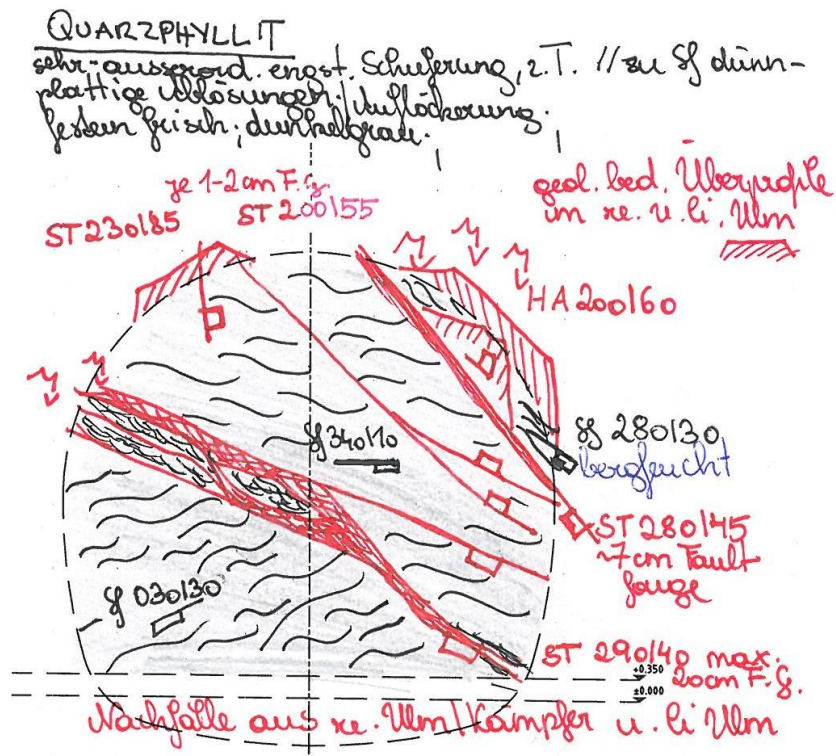 QUARZPHYLLIT
sehr-ausserord. engst. Schieferung, z.T. // zu Sf dünn-
plattige Ablösungen / Auflöckerung;
gestein frisch; dunkelgrau;
je 1-2cm F.g.
ST 230/85
ST 200/55
geol. bed. Überprofile
im re. u. li. Ulm
HA 200/60
Sf 340/10
Sf 280/30
bergfeucht
ST 280/45
~7cm Fault
Gouge
Sf 030/30
ST 290/40 max.
20cm F.G.
+0.350
±0.000
Nachfälle aus re. Ulm/Kämpfer u. li Ulm